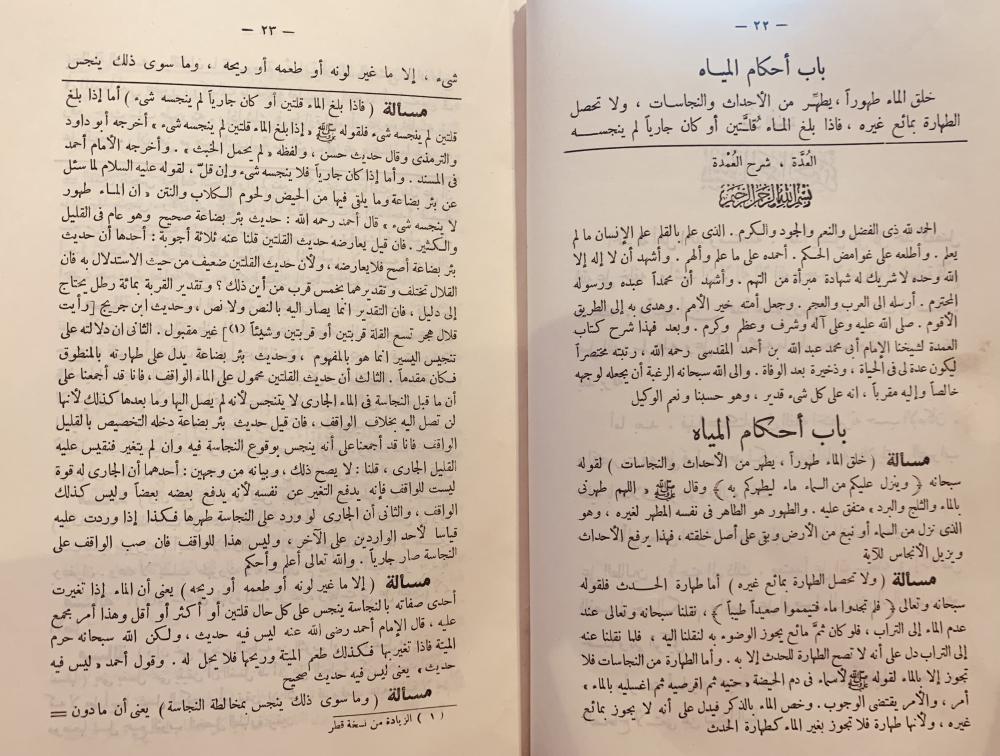 — ٢٢ —
باب أحكام المياه
خلق الماء طهوراً ، يطهِّر من الأحداث والنجاسات ، ولا تحصل
الطهارة بمائع غيره ، فاذا بلغ المـاء قلَّتين أو كان جارياً لم ينجســـه
العُدَّة ، شرح العُمْدة
بسم الله الرحمن الرحيم
الحمد لله ذى الفضل والنعم والجود والكرم . الذى علم بالقلم علم الإنسان ما لم
يعلم . وأطلعه على غوامض الحكم . أحمده على ما علم وألهم . وأشهد أن لا إله إلا
الله وحده لا شريك له شهادة مبرأة من التهم . وأشهد أن محمداً عبده ورسوله
المحترم . أرسله الى العرب والعجم . وجعل أمته خير الأمم . وهدى به إلى الطريق
الأقوم . صلى الله عليه وعلى آله وشرف وعظم وكرم . وبعد فهذا شرح كتاب
العمدة لشيخنا الإمام أبى محمد عبد الله بن أحمد المقدسى رحمه الله ، رتبته مختصراً
ليكون عدة لى فى الحياة ، وذخيرة بعد الوفاة . والى الله سبحانه الرغبة أن يجعله لوجهه
خالصاً وإليه مقرباً ، انه على كل شىء قدير ، وهو حسبنا ونعم الوكيل
باب أحكام المياه
مسألة ( خلق الماء طهوراً ، يطهر من الأحداث والنجاسات ) لقوله
سبحانه ﴿ وينزل عليكم من السماء ماء ليطهركم به ﴾ وقال ﷺ « اللهم طهرنى
بالماء والثلج والبرد » متفق عليه . والطهور هو الطاهر فى نفسه المطهر لغيره ، وهو
الذى نزل من السماء أو نبع من الأرض وبقى على أصل خلقته ، فهذا يرفع الأحداث
ويزيل الأنجاس للآية
مسألة ( ولا تحصل الطهارة بمائع غيره ) أما طهارة الحـدث فلقوله
سبحانه وتعالى ﴿ فلم تجدوا ماء فتيمموا صعيداً طيباً ﴾ ، نقلنا سبحانه وتعالى عند
عدم الماء إلى التراب ، فلو كان ثمَّ مائع يجوز الوضوء به لنقلنا اليه ، فلما نقلنا عنه
إلى التراب دل على أنه لا تصح الطهارة للحدث إلا به . وأما الطهارة من النجاسات فلا
تجوز إلا بالماء لقوله ﷺ لأسماء فى دم الحيضة « حتيه ثم اقرصيه ثم اغسليه بالماء »
أمر ، والأمر يقتضى الوجوب . وخص الماء بالذكر فيدل على أنه لا يجوز بمائع
غيره ، ولأنها طهارة فلا تجوز بغير الماء كطهارة الحدث
— ٢٣ —
شىء ، إلا ما غير لونه أو طعمه أو ريحه ، وما سوى ذلك ينجس
مسألة ( فاذا بلغ الماء قلتين أو كان جارياً لم ينجسه شىء ) أما إذا بلغ
قلتين لم ينجسه شىء فلقوله ﷺ « إذا بلغ الماء قلتين لم ينجسه شىء » أخرجه أبو داود
والترمذى وقال حديث حسن ، ولفظه « لم يحمل الخبث » . وأخرجه الأمام أحمد
فى المسند . وأما إذا كان جارياً فلا ينجسه شىء وإن قلّ ، لقوله عليه السلام لما سئل
عن بئر بضاعة وما يلقى فيها من الحيض ولحوم الـكلاب والنتن « ان المـاء طهور
لا ينجسه شىء » قال أحمد رحمه الله : حديث بئر بضاعة صحيح وهو عام فى القليل
والـكثير . فان قيل يعارضه حديث القلتين قلنا عنه ثلاثة أجوبة : أحدها أن حديث
بئر بضاعة أصح فلا يعارضه ، ولأن حديث القلتين ضعيف من حيث الاستدلال به فان
القلال تختلف وتقديرهما بخمس قرب من أين ذلك ؟ وتقدير القربة بمائة رطل يحتاج
إلى دليل ، فان التقدير انما يصار اليه بالنص ولا نص ، وحديث ابن جريج [رأيت
قلال هجر تسع القلة قربتين أو قربتين وشيئاً (١)] غير مقبول . الثانى ان دلالته على
تنجيس اليسير انما هو بالمفهوم ، وحديث بئر بضاعة يدل على طهارته بالمنطوق
فـكان مقدماً . الثالث أن حديث القلتين محمول على الماء الواقف ، فانا قد أجمعنا على
أن ما قبل النجاسة فى الماء الجارى لا يتنجس لأنه لم يصل اليها وما بعدها كذلك لأنها
لن تصل اليه بخلاف الواقف ، فان قيل حديث بئر بضاعة دخله التخصيص بالقليل
الواقف فانا قد أجمعنا على أنه ينجس بوقوع النجاسة فيه وان لم يتغير فنقيس عليه
القليل الجارى ، قلنا : لا يصح ذلك ، وبيانه من وجهين : أحدهما أن الجارى له قوة
ليست للواقف فإنه يدفع التغير عن نفسه لأنه يدفع بعضه بعضاً وليس كذلك
الواقف ، والثانى أن الجارى لو ورد على النجاسة طهرها فـكذا إذا وردت عليه
قياسا لأحد الواردين على الآخر ، وليس هذا للواقف فان صب الواقف على
النجاسة صار جارياً . والله تعالى أعلم وأحكم
مسألة ( إلا ما غير لونه أو طعمه أو ريحه ) يعنى أن الماء إذا تغيرت
أحدى صفاته بالنجاسة ينجس على كل حال قلتين أو أكثر أو أقل وهذا أمر مجمع
عليه ، قال الإمام أحمد رضى الله عنه ليس فيه حديث ، ولـكن الله سبحانه حرم
الميتة فاذا تغير بها فـكذلك طعم الميتة وريحها فلا يحل له . وقول أحمد « ليس فيه
حديث » يعنى ليس فيه حديث صحيح
مسألة ( وما سوى ذلك ينجس بمخالطة النجاسة ) يعنى أن ما دون =
( ١ ) الزيادة من نسخة قطر